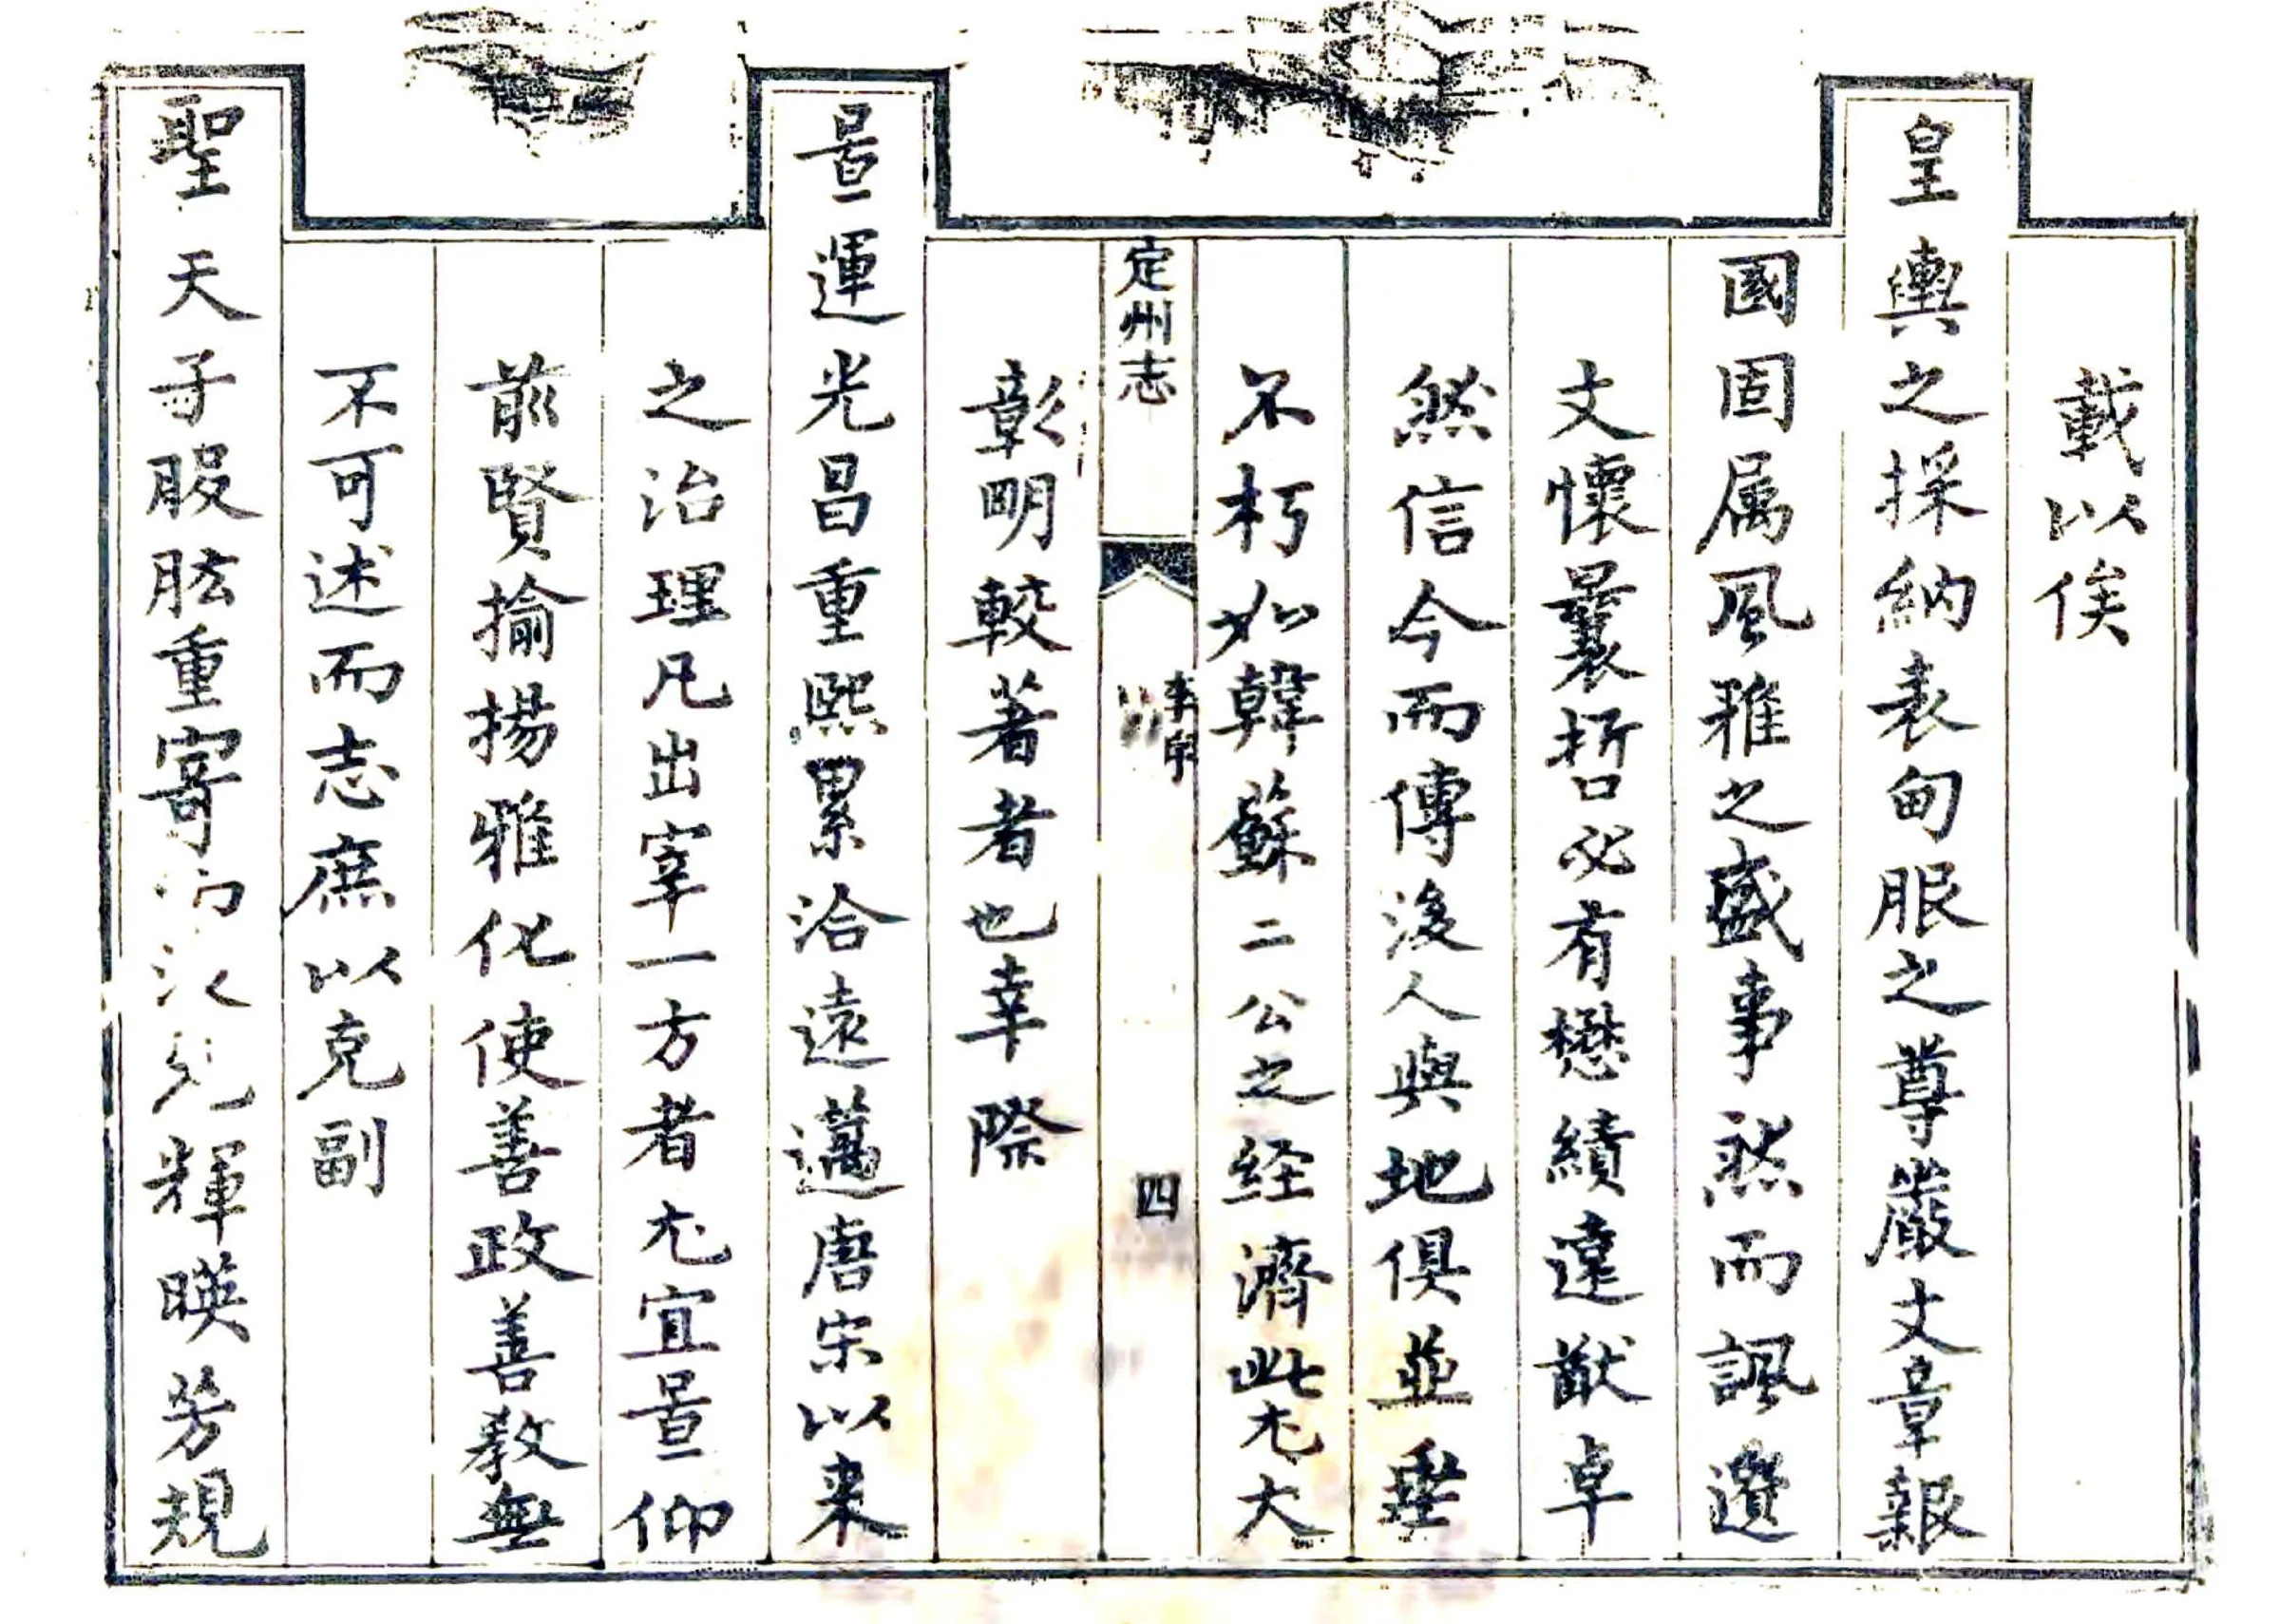 載以俟
皇輿之採納表甸服之尊嚴文章報
國固属風雅之盛事然而諷遺
文懷曩哲必有懋績遠猷卓
然信今而傳後人與地俱並垂
不朽如韓蘇二公之経濟此尤大
定州志 四
彰明較著者也幸際
景運光昌重熙累洽遠邁唐宋以来
之治理凡出宰一方者尤宜景仰
前賢揄揚雅化使善政善教無
不可述而志庶以克副
聖天子股肱重寄
輝暎芳規